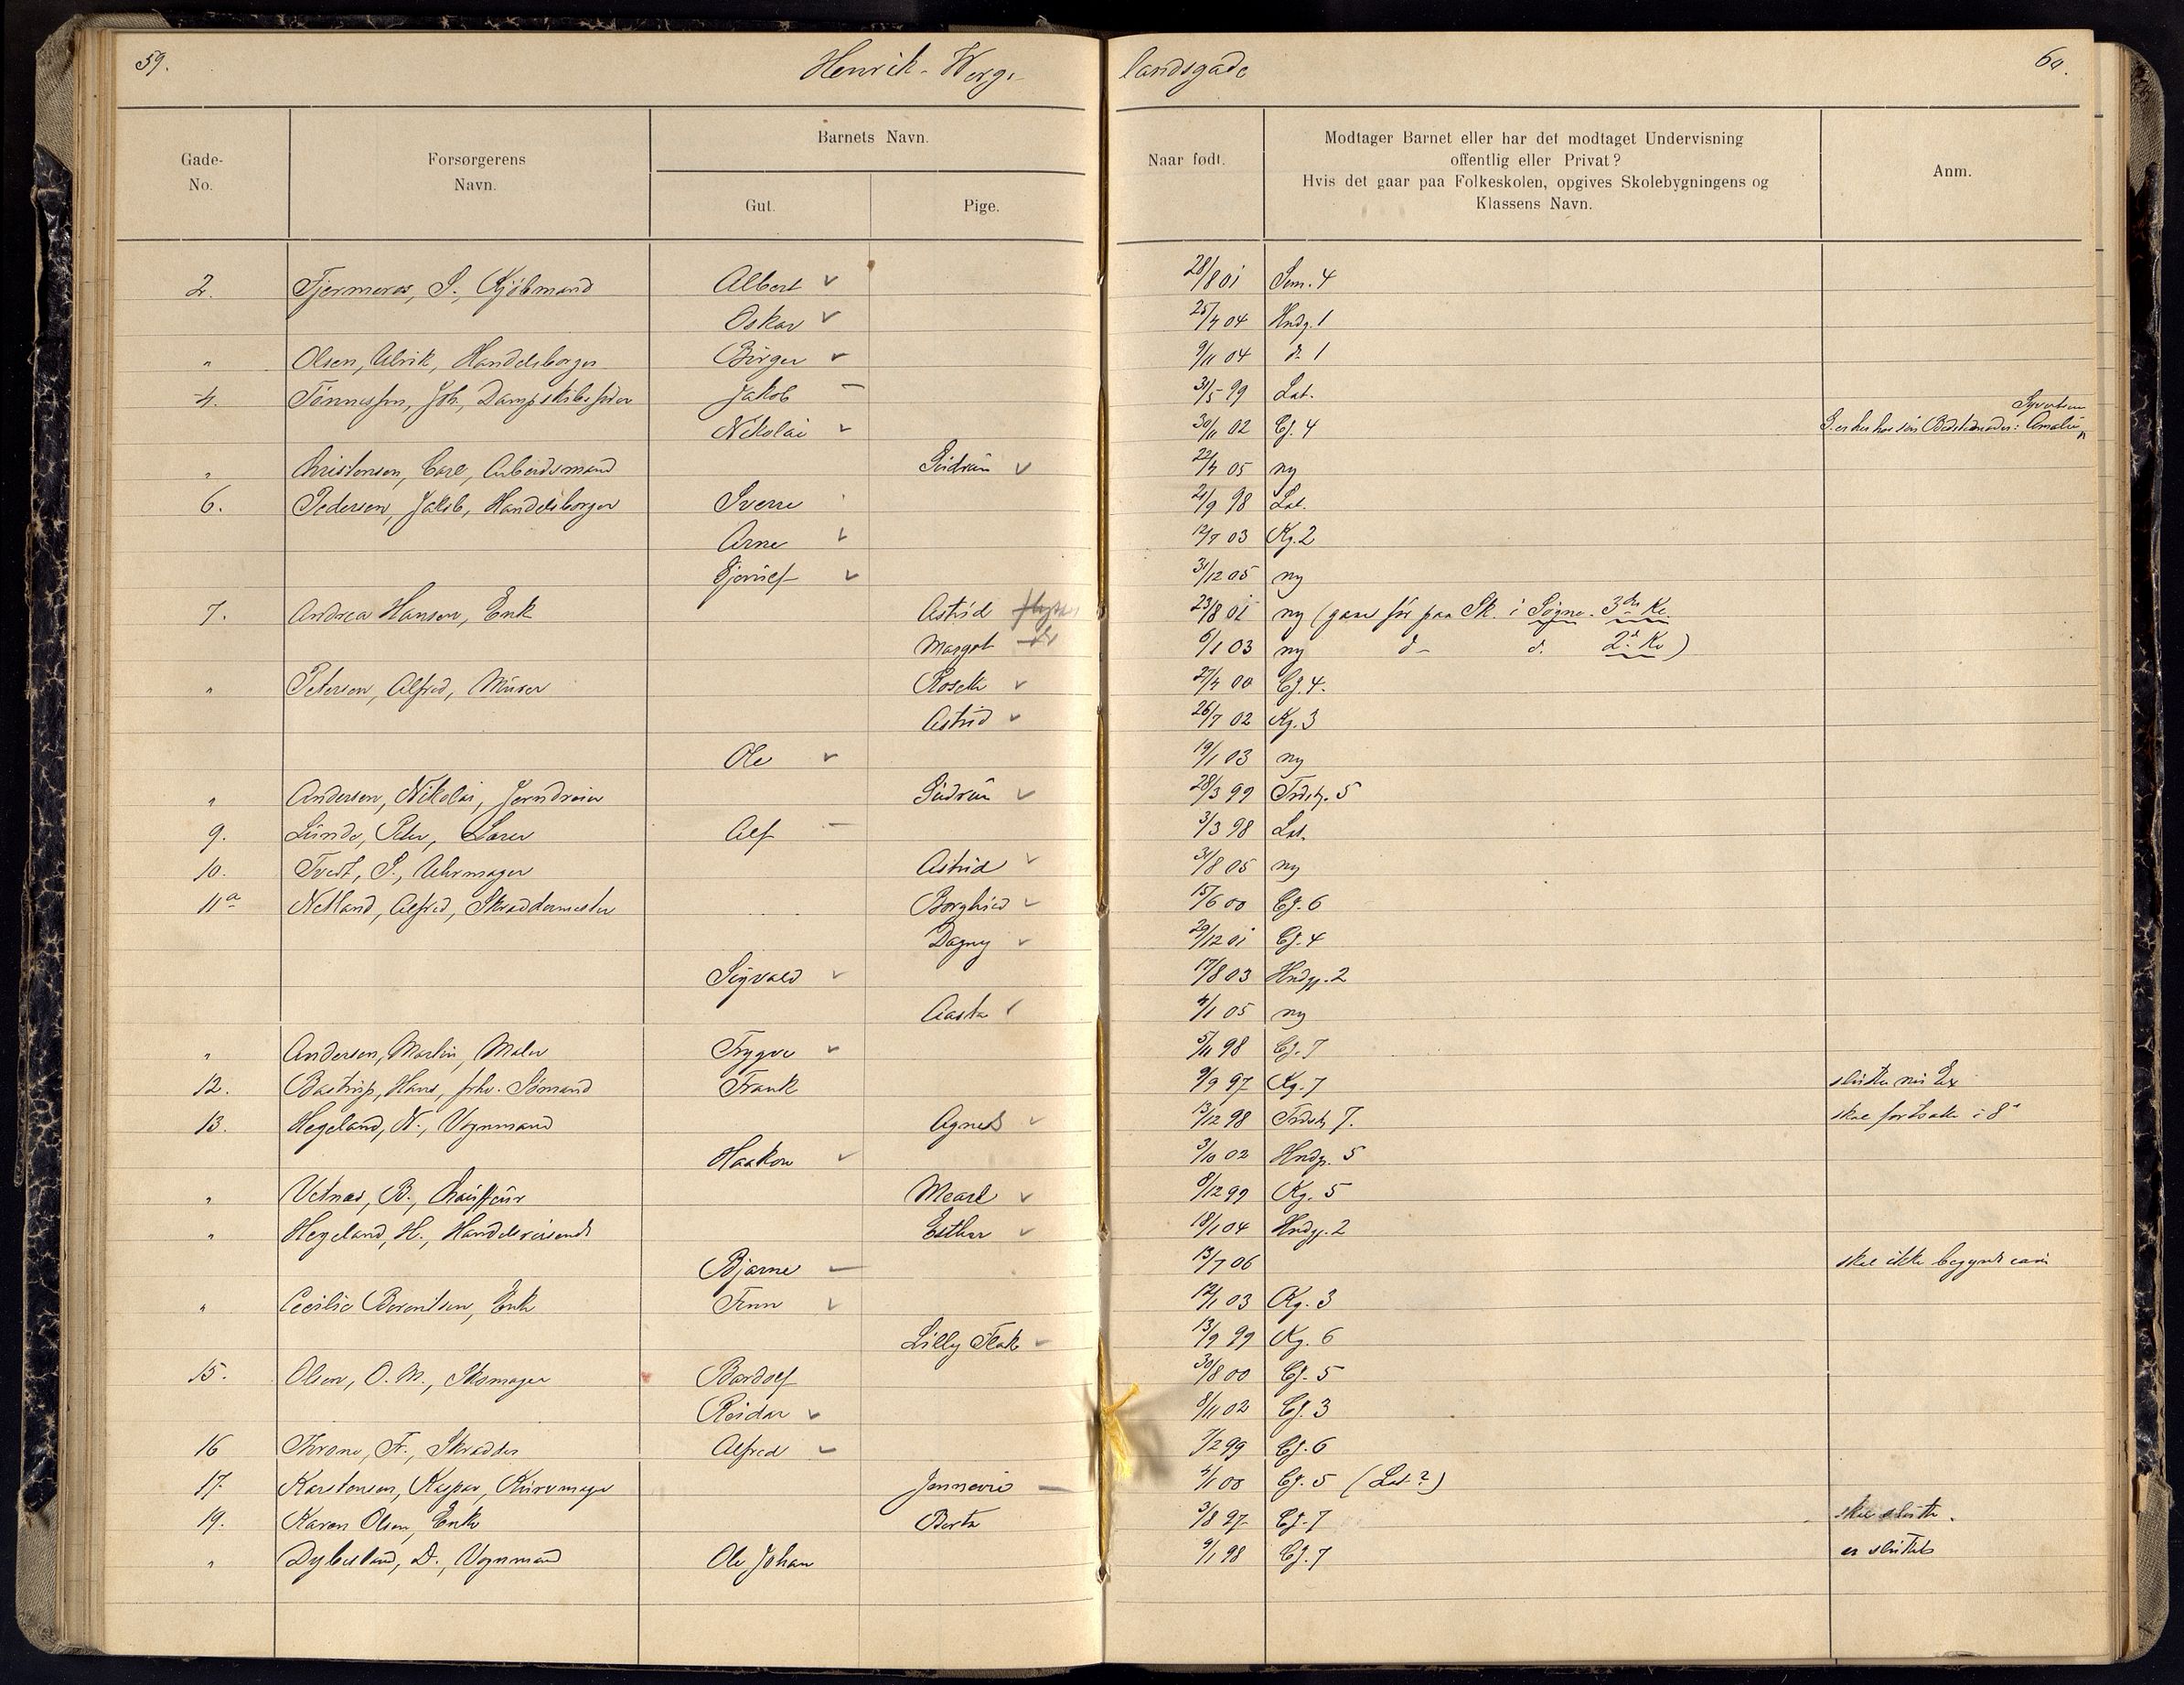 59.
Henrik-Werge-
landsgade
60.
Gade-
No.
Forsørgerens
Navn.
Barnets Navn.
Gut.
Pige.
Naar født.
Modtager Barnet eller har det modtaget Undervisning
offentlig eller Privat?
Hvis det gaar paa Folkeskolen, opgives Skolebygningens og
Klassens Navn.
Anm.
2. Fjermeros, S., Kjøbmand Albert 28/8 01 Sem. 4
Oskar 25/4 04 Hndg. 1
" Olsen, Ulrik, Handelsborger Birger 9/11 04 d. 1
4. Tønnesen, Joh., Jakob 31/5 99 Lat.
Syvertsen
Nikolai 30/11 02 Cf. 4 Bedstemoder: Amalie
" Christensen, Carl, Arbeidsmand Gudrun 22/4 05 ny
6. Pedersen, Jakob, Handelsborger Sverre 21/9 98 Lat.
Arne 12/7 03 Kg. 2
31/12 05 ny
7. Andrea Hansen, Enk Astrid flyttet 23/8 01 ny (gaar før paa Sk. i Søgne. 3die Kl.
Margot 6/1 03 ny d d. 2d Kl)
" Petersen, Alfred, Murer 27/4 00 Cf. 4.
Astrid 26/7 02 Kg. 3
Ole 19/1 03 ny
" Andersen, Nikolai, Jerndreier Gudrun 28/3 99 Trdstg. 5
9. Lunde, Peter, Alf 3/3 98 Lat.
10. Tvedt, S., Uhrmager Astrid 31/8 05 ny
11a Netland, Alfred, Skræddermester Borghild 15/6 00 Cf. 6
Dagny 29/12 01 Cf. 4
Sigvald 17/8 03 Hndg. 2
Aasta 4/1 05 ny
" Andersen, Martin, Maler Trygve 5/11 98 Cf. 7
12. Bastrup, Hans, fhv. Sømand Frank 9/9 97 Kg. 7 slutter nu Ex
13. Hegeland, N., Vognmand Agnes 13/12 98 Trdstg 7. skal fortsætte i 8de
Haakon 3/10 02 Hndg. 5
" Vetnes, B., Chauffeur 8/12 99 Kg. 5
" Hegeland, H., Handelsreisende Esther 18/1 04 Hndg. 2
Bjarne 13/7 06 skal ikke begynde
" Cecilie Berentsen, Enk Finn 12/1 03 Kg. 3
Lilly 13/9 99 Kg. 6
15. Olsen, O. M., Skomager Bardolf 30/8 00 Cf. 5
Reidar 8/11 02 Cf. 3
16 Throne, Fr., Skrædder Alfred 7/2 99 Cf. 6
17. Karstensen, Kaspar, Kurvmager 4/1 00 Cf. 5 (Lat?)
19. Karen Olsen, Enk Berta 3/8 97 Cf. 7 skal slutte.
" Dybesland, D., Vognmand Ole Johan 9/1 98 Cf. 7 er sluttet